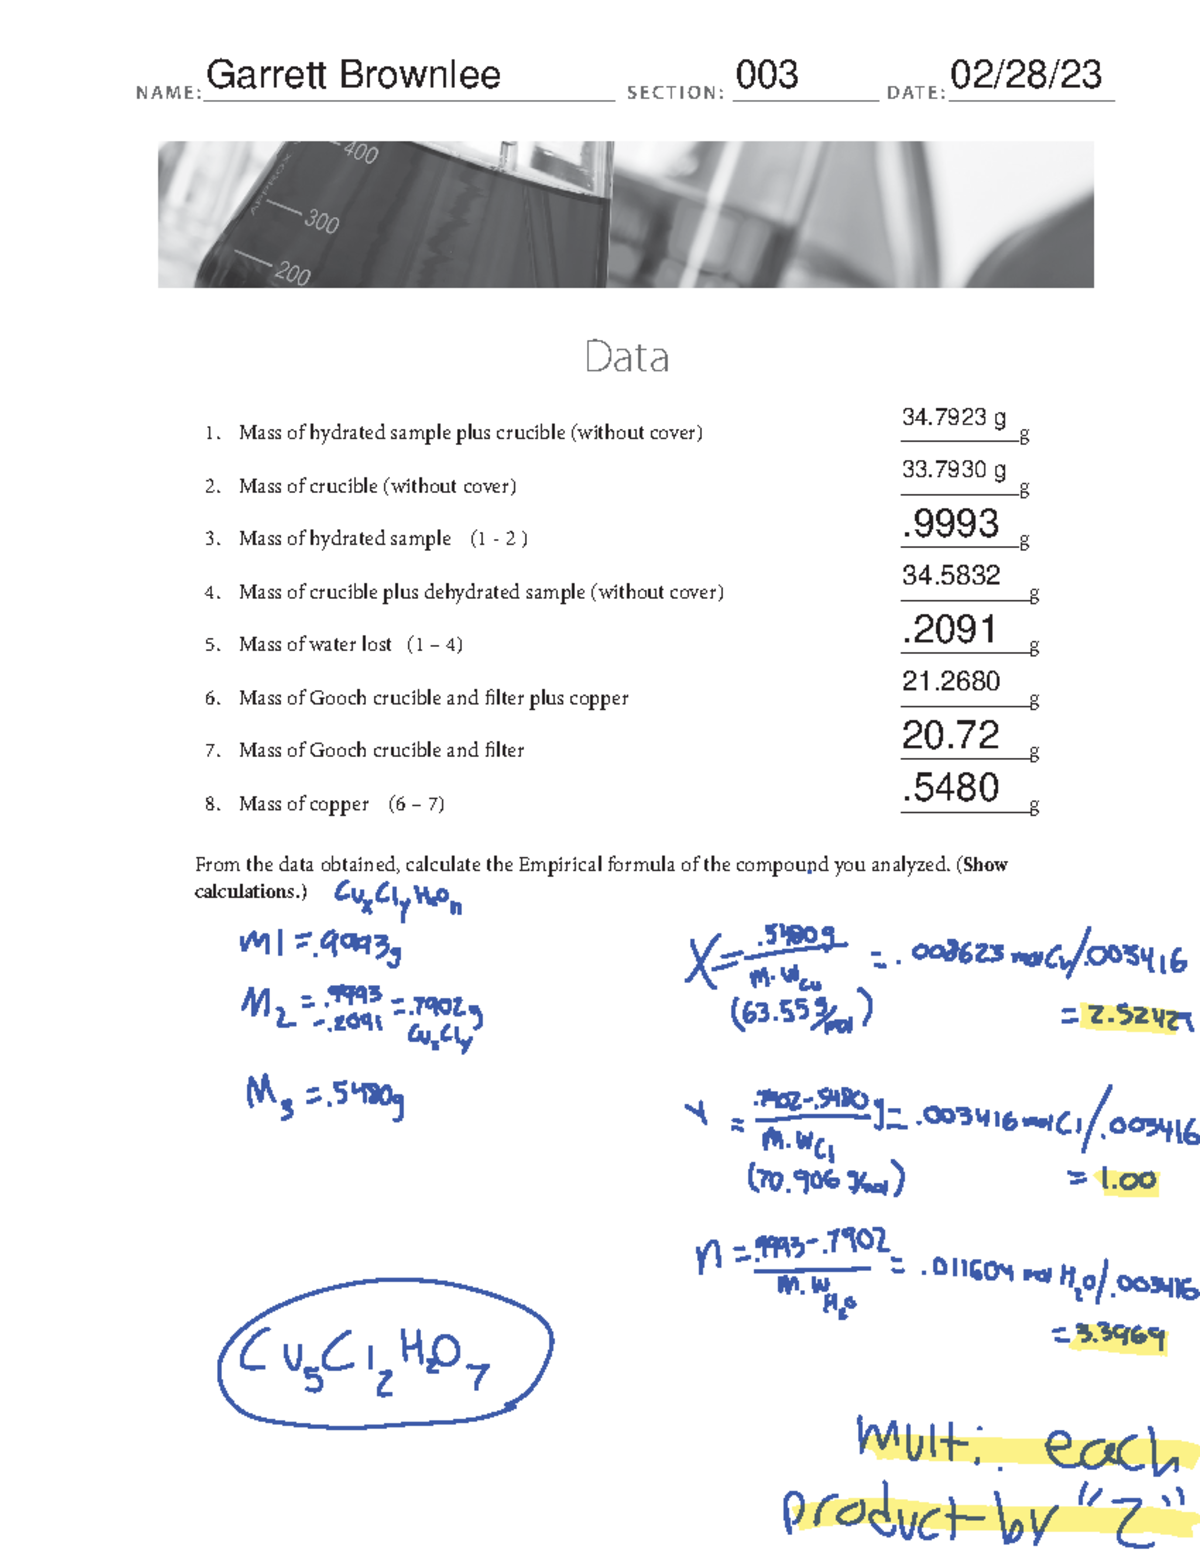 NAME: Garrett Brownlee SECTION: 003 DATE: 02/28/23
400
APPROX
300
200
Data
1. Mass of hydrated sample plus crucible (without cover) 34.7923 g g
2. Mass of crucible (without cover) 33.7930 g g
3. Mass of hydrated sample (1 - 2 ) .9993 g
4. Mass of crucible plus dehydrated sample (without cover) 34.5832 g
5. Mass of water lost (1 – 4) .2091 g
6. Mass of Gooch crucible and filter plus copper 21.2680 g
7. Mass of Gooch crucible and filter 20.72 g
8. Mass of copper (6 – 7) .5480 g
From the data obtained, calculate the Empirical formula of the compound you analyzed. (Show
calculations.) CuxClyH2On
M1 = .9993g
M2 = .9993 - .2091 = .7902g CuxCly
M3 = .5480g
X = .5480g / M.W Cu (63.55 g/mol) = .008623 mol Cu/.003416
= 2.5242
Y = .7902-.5480 g / M.W Cl (70.906 g/mol) = .003416 mol Cl/.003416
= 1.00
n = .9993-.7902 / M.W H2O = .011604 mol H2O/.003416
= 3.3969
Cu5Cl2H2O7
Mult. each
product by "2"